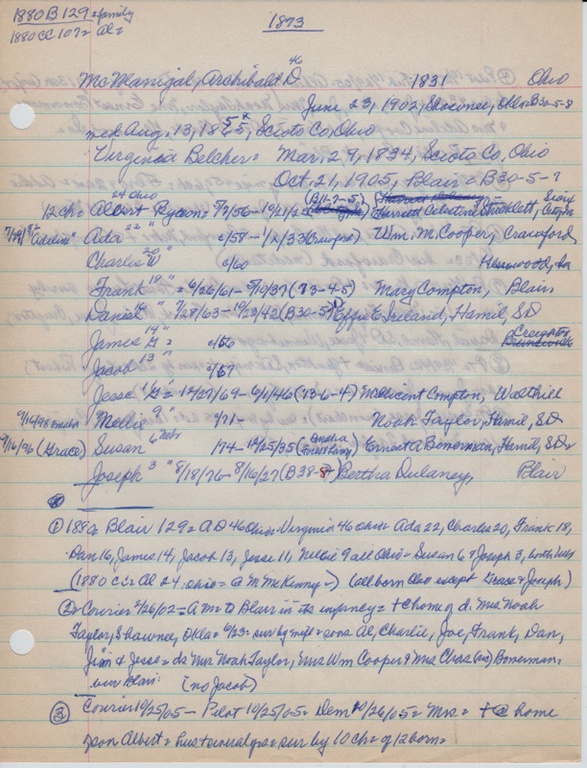 1880 B 129 = family 1873
1880 CC 107 = Al =
46
McManigal, Archibald D 1831 Ohio
June 23, 1902, Shawnee, Okla = B30-5-8
med Aug, 13, 1855, Scioto Co, Ohio
Virginia Belcher = Mar, 29, 1834, Scioto Co, Ohio
Oct, 21, 1905, Blair = B30-5-7
12 ch = Albert Ryson = 5/9/56 - (B11-7-5) Harriott Celestine Stricklett,
24 Ohio
"Adeline" Ada 22 " c/58 - 1/x/33 (Crawford) Wm. M. Cooper, Crawford
Charlie W 20 " c/60
Frank 18 " = 6/26/61 - 5/10/37 (73-4-5) Mary Compton, Blair
Daniel 16 " 7/28/63 - 10/23/42 (B30-5- Effie C. Ireland, Hamil, SD
James G = 14 " c/66 Creighton,
Jacob 13 " c/67
Jesse G = 11 " 12/27/69 - 6/1/46 (73-6-4) Millicent Compton, Walthill
9/14/98 Omaha Mellie 9 " c/71 - Noah Taylor, Hamil, SD
9/16/96 (Grace) Susan 6 Nebr /74 - 10/25/35 (Omaha Forest Lawn) Ernest A Bonerman, Hamil, SD
Joseph 3 " 8/18/76 - 8/16/27 (B38-8-) Bertha Dulaney, Blair
① 1880 = Blair 129 = AD 46 Ohio = Virginia 46 Ohio = Ada 22, Charles 20, Frank 18,
Dan 16, James 14, Jacob 13, Jesse 11, Nellie 9 all Ohio = Susan 6 & Joseph 3, both Neb
(1880 CC = Al 24 = Ohio = @ M McKenney =) (all born Ohio except Grace & Joseph)
② Courier 6/26/02 = A Mc D Blair in its infancy = + @ home of d. Mrs Noah
Taylor, Shawnee, Okla = 6/23 = sur by wife = sons Al, Charlie, Joe, Frank, Dan,
Jim & Jesse = ds Mrs Noah Taylor, Mrs Wm Cooper & Mrs Chas (sic) Bonerman.
bur Blair (no Jacob)
③ Courier 10/25/05 - Pilot 10/25/05 = Dem 10/26/05 = Mrs. = + @ home
son Albert = hus + several yrs = sur by 10 ch = of 12 born =